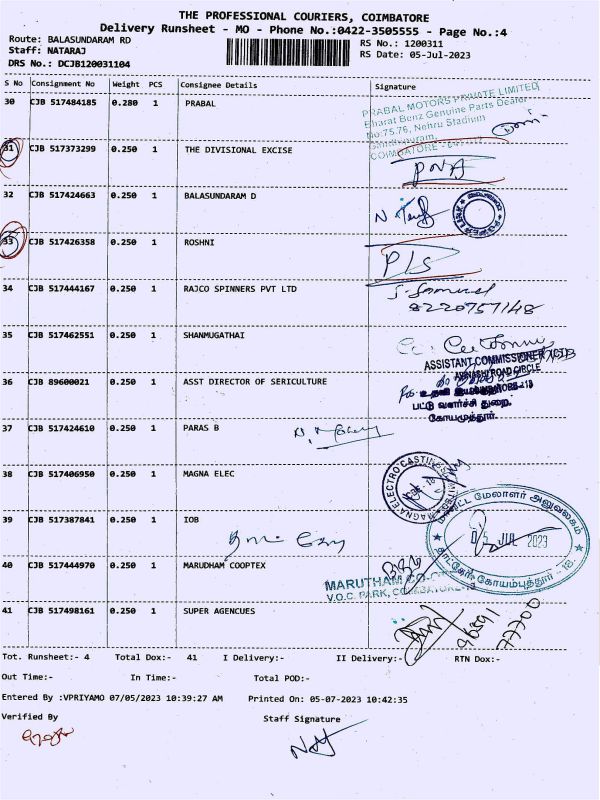 THE PROFESSIONAL COURIERS, COIMBATORE
Delivery Runsheet - MO - Phone No.:0422-3505555 - Page No.:4
Route: BALASUNDARAM RD
RS No.: 1200311
Staff: NATARAJ
RS Date: 05-Jul-2023
DRS No.: DCJB120031104
S No Consignment No Weight PCS Consignee Details Signature
30 CJB 517484185 0.280 1 PRABAL
PRABAL MOTORS PRIVATE LIMITED
Bharat Benz Genuine Parts Dealer
No:75,76, Nehru Stadium
COIMBATORE
31 CJB 517373299 0.250 1 THE DIVISIONAL EXCISE
32 CJB 517424663 0.250 1 BALASUNDARAM D
33 CJB 517426358 0.250 1 ROSHNI
P/S
34 CJB 517444167 0.250 1 RAJCO SPINNERS PVT LTD
8220757148
35 CJB 517462551 0.250 1 SHANMUGATHAI
ASSISTANT COMMISSIONER (CT)
AVINASHI ROAD CIRCLE
36 CJB 89600021 0.250 1 ASST DIRECTOR OF SERICULTURE
பட்டு வளர்ச்சி துறை,
கோயமுத்தூர்
37 CJB 517424610 0.250 1 PARAS B
38 CJB 517406950 0.250 1 MAGNA ELEC
MAGNA ELECTRO CASTINGS LIMITED
39 CJB 517387841 0.250 1 IOB
மாவட்ட மேலாளர் அலுவலகம்
05 JUL 2023
கோயம்புத்தூர் - 18
40 CJB 517444970 0.250 1 MARUDHAM COOPTEX
MARUTHAM CO-
V.O.C. PARK, COIMBATORE
41 CJB 517498161 0.250 1 SUPER AGENCUES
96591
77700
Tot. Runsheet:- 4 Total Dox:- 41 I Delivery:- II Delivery:- RTN Dox:-
Out Time:- In Time:- Total POD:-
Entered By :VPRIYAMO 07/05/2023 10:39:27 AM Printed On: 05-07-2023 10:42:35
Verified By Staff Signature